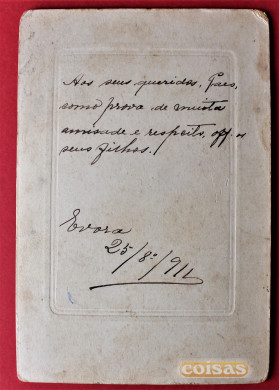 Aos seus queridos, Paes,
como prova de muita
amisade e respeito, off. os
seus filhos.
Evora
25/8º/911
coisas